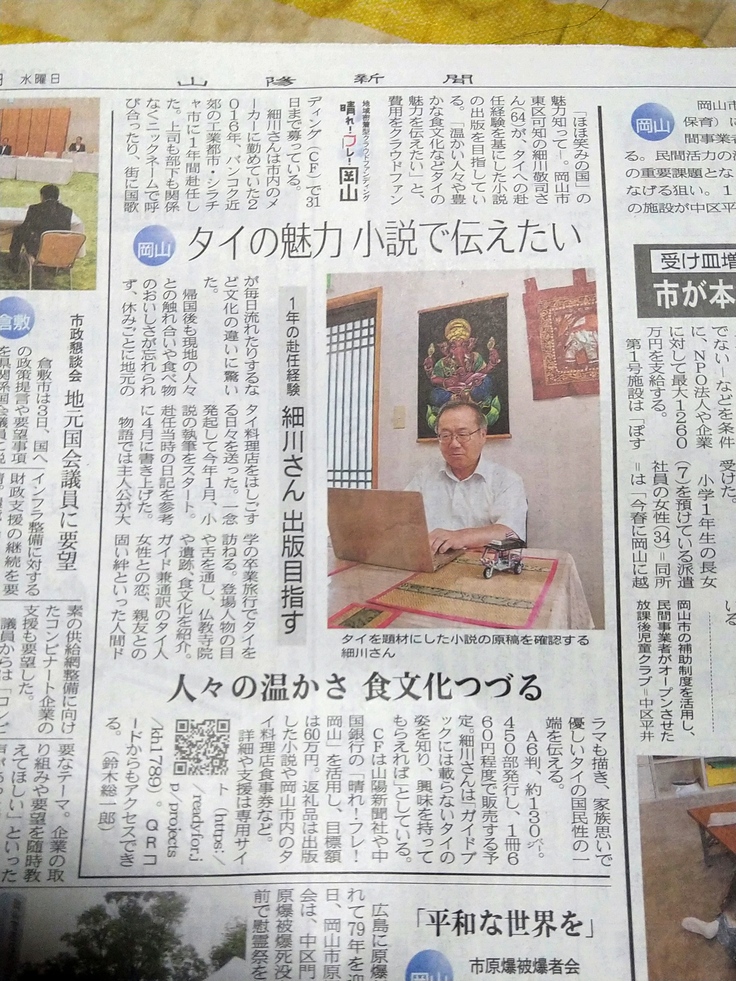 水曜日
山陽新聞
岡山
岡山市
保育)に
間事業者
る。民間活力の
の重要課題とな
なげる狙い。1
の施設が中区平
受け皿増
市が本
でない―などを条件
に、NPO法人や企業
に対して最大1260
万円を支給する。
第1号施設は「ぽす
受けた。
小学1年生の長女
(7)を預けている派遣
社員の女性(34)=同所
=は「今春に岡山に越
いる
岡山市の補助制度を活用し、
民間事業者がオープンさせた
放課後児童クラブ=中区平井
「ほほ笑みの国」の
魅力知って―。岡山市
東区可知の細川敬司さ
ん(64)が、タイへの赴
任経験を基にした小説
の出版を目指してい
る。「温かい人々や豊
かな食文化などタイの
魅力を伝えたい」と、
費用をクラウドファン
地域密着型クラウドファンディング
晴れ!フレ!岡山
ディング(CF)で31
日まで募っている。
細川さんは市内のメ
ーカーに勤めていた2
016年、バンコク近
郊の工業都市・シラチ
ャ市に1年間赴任し
た。上司も部下も関係
なくニックネームで呼
び合ったり、街に国歌
岡山
タイの魅力 小説で伝えたい
1年の赴任経験
細川さん 出版目指す
タイを題材にした小説の原稿を確認する
細川さん
が毎日流れたりするな
ど文化の違いに驚い
た。
帰国後も現地の人々
との触れ合いや食べ物
のおいしさが忘れられ
ず、休みごとに地元の
タイ料理店をはしごす
る日々を送った。一念
発起して今年1月、小
説の執筆をスタート。
赴任当時の日記を参考
に4月に書き上げた。
物語では主人公が大
学の卒業旅行でタイを
訪ねる。登場人物の目
や舌を通し、仏教寺院
や遺跡、食文化を紹介。
ガイド兼通訳のタイ人
女性との恋、親友との
固い絆といった人間ド
人々の温かさ 食文化つづる
ラマも描き、家族思いで
優しいタイの国民性の一
端を伝える。
A6判、約130㌻。
450部発行し、1冊6
60円程度で販売する予
定。細川さんは「ガイドブ
ックには載らないタイの
姿を知り、興味を持って
もらえれば」としている。
CFは山陽新聞社や中
国銀行の「晴れ!フレ!
岡山」を活用し、目標額
は60万円。返礼品は出版
した小説や岡山市内のタ
イ料理店食事券など。
詳細や支援は専用サイ
ト(https:/
/readyfor.j
p/projects
/kh1789)。QRコ
ードからもアクセスでき
る。 (鈴木総一郎)
倉敷
市政懇談会
地元国会議員に要望
倉敷市は3日、国へ
の政策提言や要望事項
を県関係国会議員に説
インフラ整備に対する
財政支援の継続を要
素の供給網整備に向け
たコンビナート企業の
支援も要望した。
議員からは「コンビ
要なテーマ。企業の取
り組みや要望を随時教
えてほしい」といった
「平和な世界を」
岡山
市原爆被爆者会
広島に原爆
れて79年を迎
日、岡山市原
会は、中区門
原爆被爆死没
前で慰霊祭を